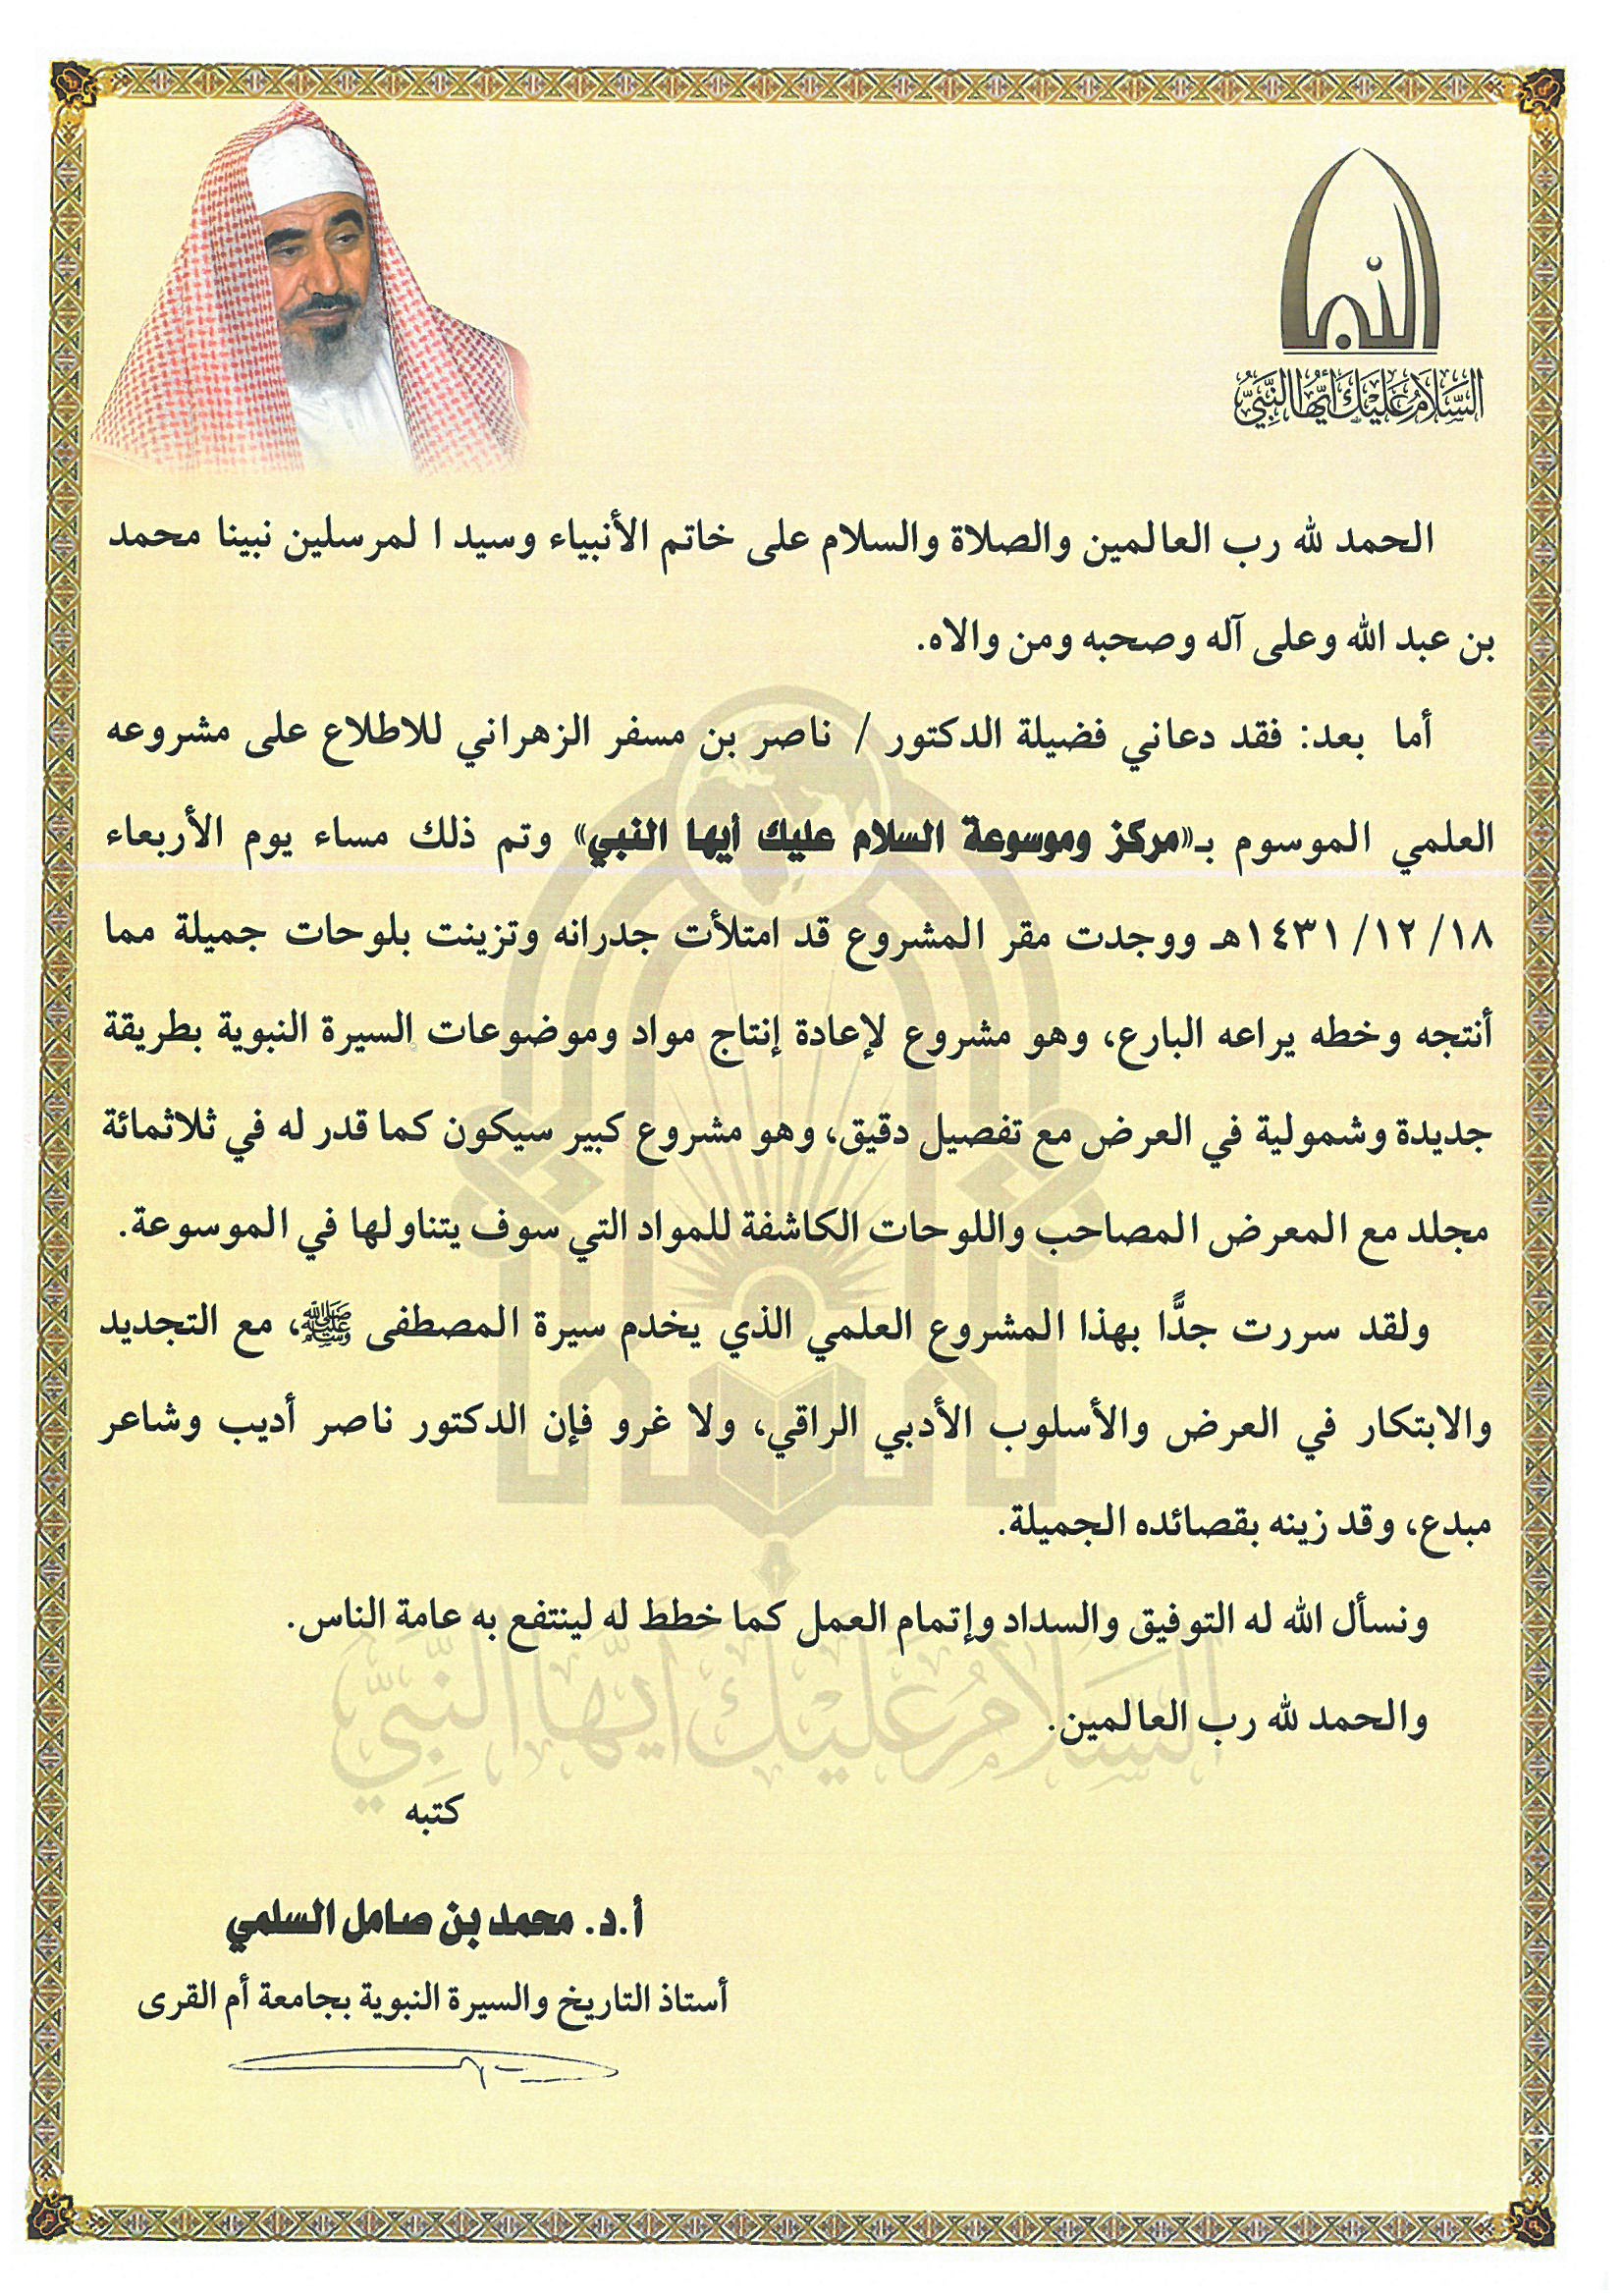 النبي
السلام عليك أيها النبي
الحمد لله رب العالمين والصلاة والسلام على خاتم الأنبياء وسيد ا لمرسلين نبينا محمد
بن عبد الله وعلى آله وصحبه ومن والاه.
أما بعد: فقد دعاني فضيلة الدكتور / ناصر بن مسفر الزهراني للاطلاع على مشروعه
العلمي الموسوم بـ«مركز وموسوعة السلام عليك أيها النبي» وتم ذلك مساء يوم الأربعاء
١٨/ ١٢/ ١٤٣١هـ ووجدت مقر المشروع قد امتلأت جدرانه وتزينت بلوحات جميلة مما
أنتجه وخطه يراعه البارع، وهو مشروع لإعادة إنتاج مواد وموضوعات السيرة النبوية بطريقة
جديدة وشمولية في العرض مع تفصيل دقيق، وهو مشروع كبير سيكون كما قدر له في ثلاثمائة
مجلد مع المعرض المصاحب واللوحات الكاشفة للمواد التي سوف يتناولها في الموسوعة.
ولقد سررت جدًّا بهذا المشروع العلمي الذي يخدم سيرة المصطفى ﷺ، مع التجديد
والابتكار في العرض والأسلوب الأدبي الراقي، ولا غرو فإن الدكتور ناصر أديب وشاعر
مبدع، وقد زينه بقصائده الجميلة.
ونسأل الله له التوفيق والسداد وإتمام العمل كما خطط له لينتفع به عامة الناس.
السلام عليك أيها النبي
والحمد لله رب العالمين.
كتبه
أ.د. محمد بن صامل السلمي
أستاذ التاريخ والسيرة النبوية بجامعة أم القرى